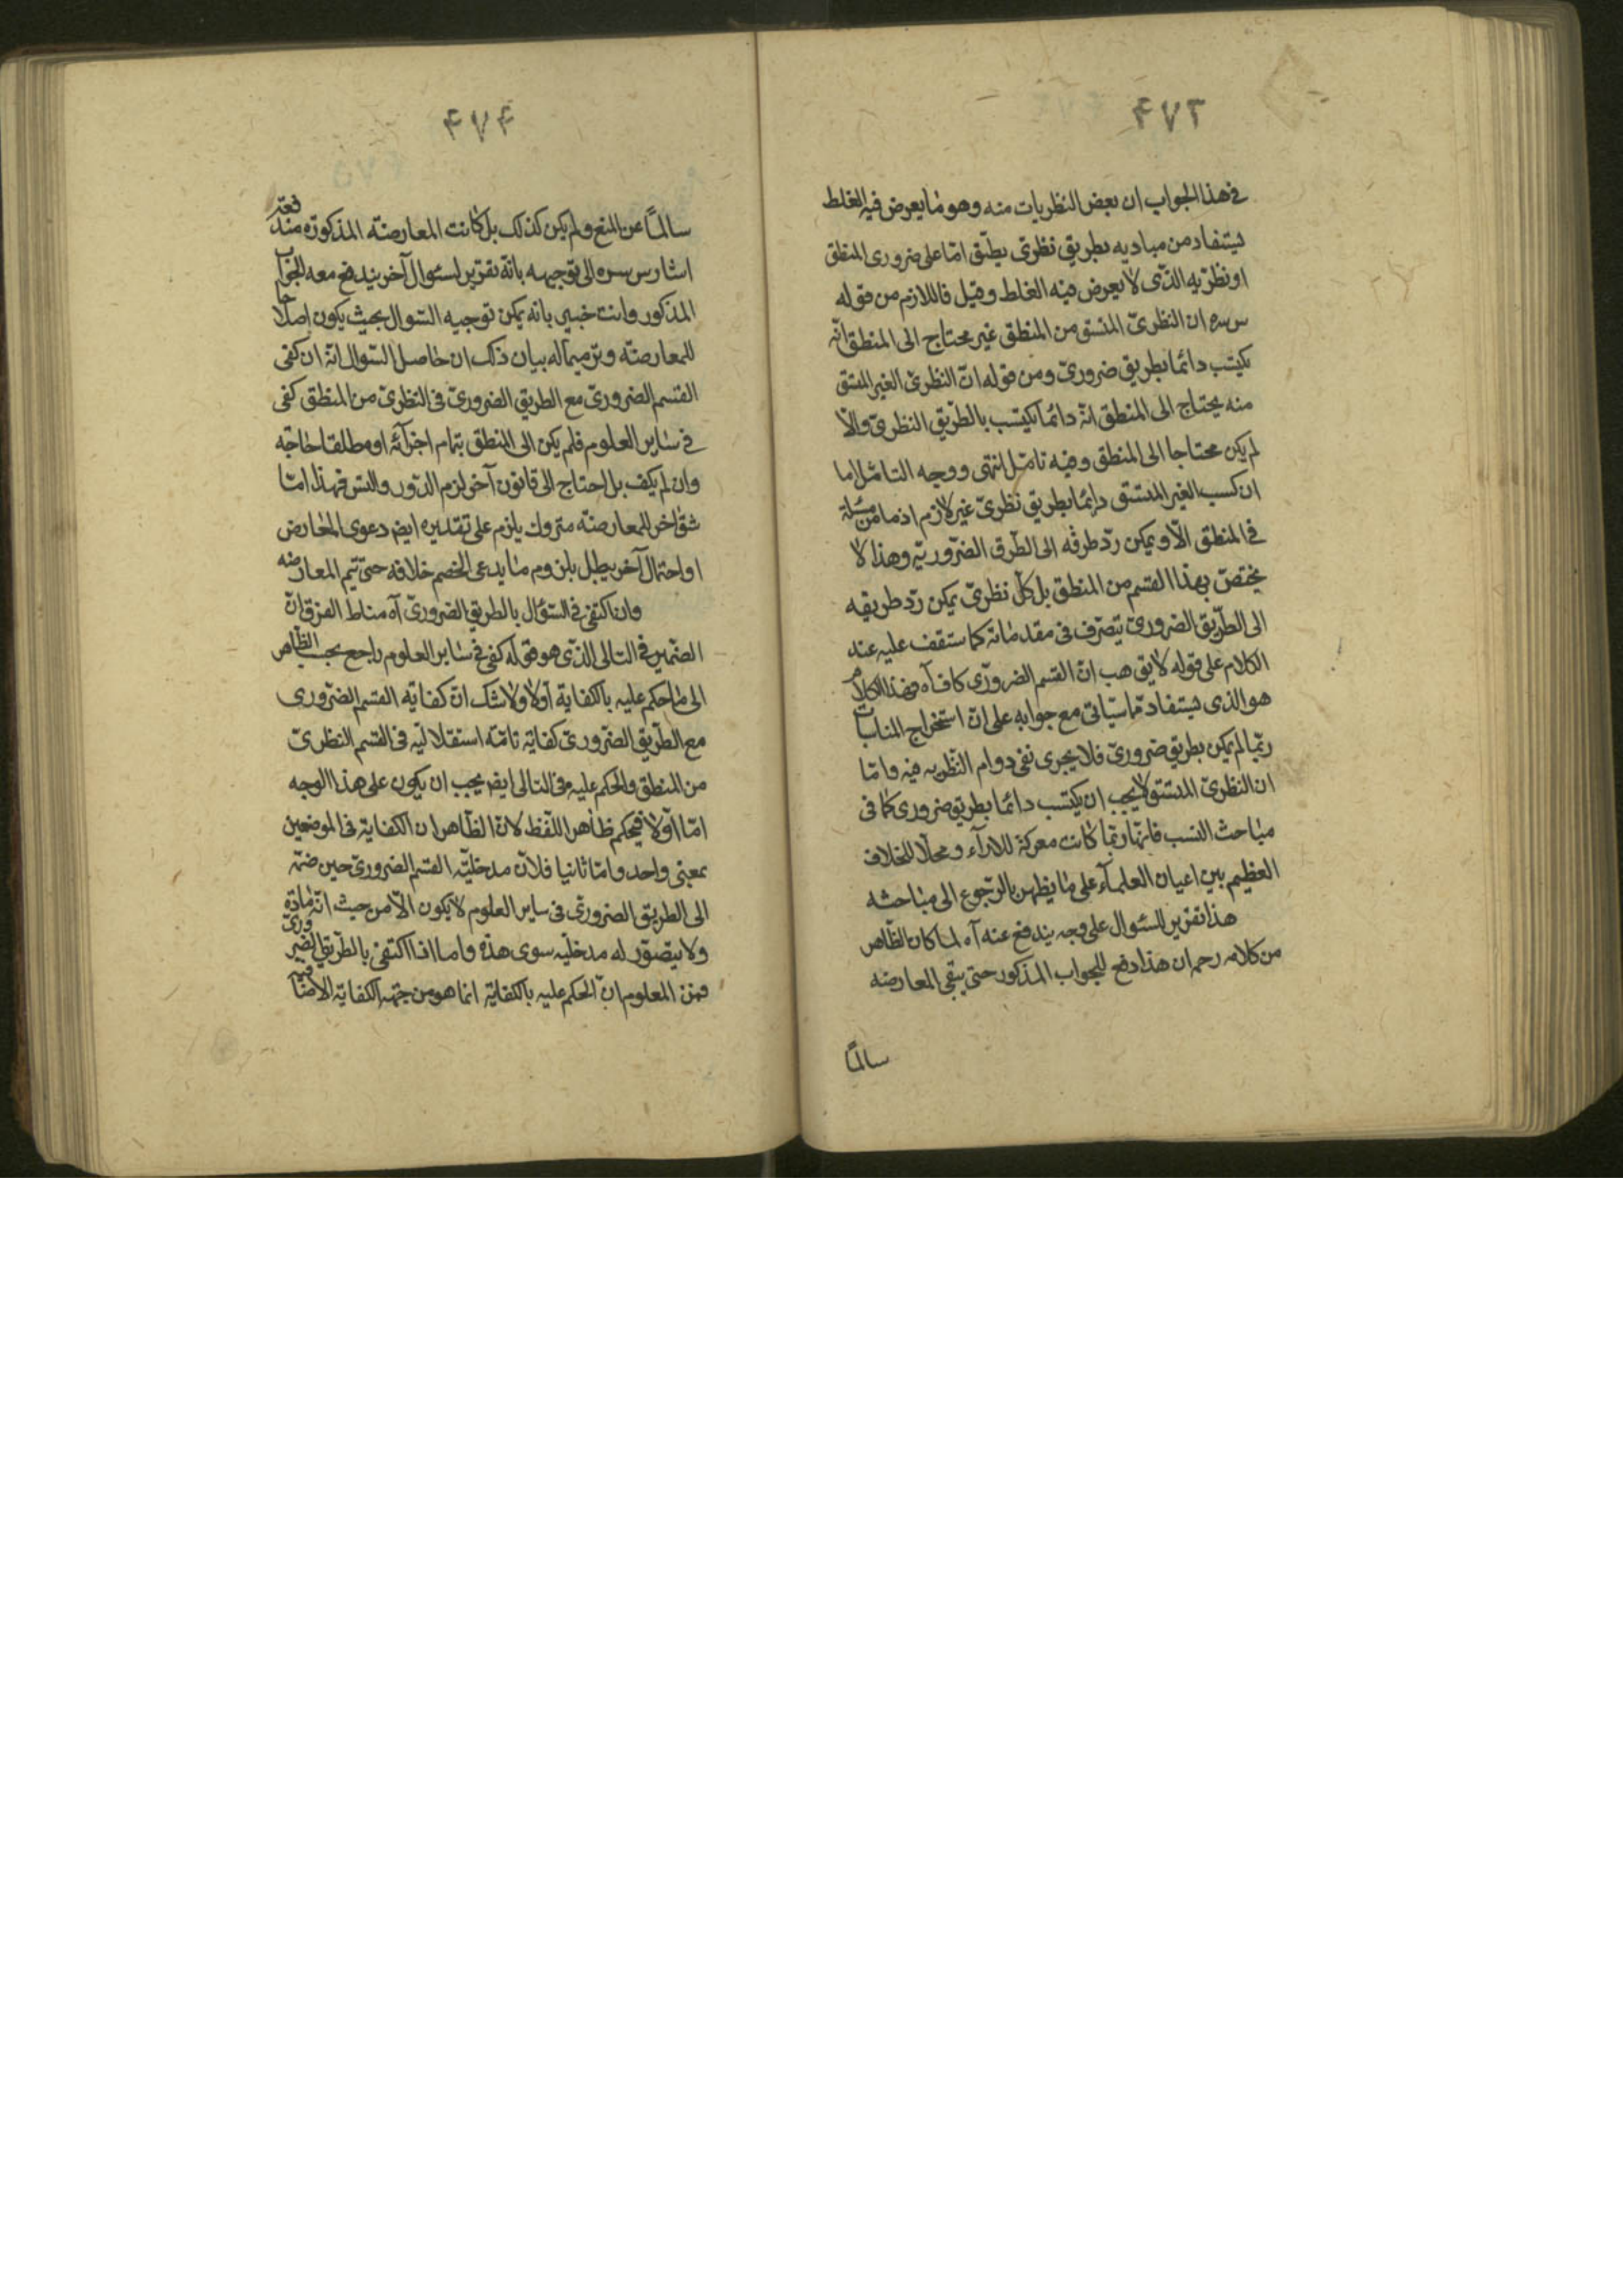 ۴۷۳
في هذا الجواب ان بعض النظريات منه وهو ما يعرض فيه الغلط
يستفاد من مباديه بطريق نظرى يطبق امّا على ضرورى المنطق
او نظريه الذى لا يعرض فيه الغلط وقيل فاللازم من قوله
س سره ان النظرىّ المتسق من المنطق غير محتاج الى المنطق انّه
يكتسب دائما بطريق ضرورىّ ومن قوله انّ النظرىّ الغير المتسق
منه يحتاج الى المنطق انّه دائما يكتسب بالطّريق النظرىّ والّا
لم يكن محتاجا الى المنطق وفيه تامّل انتهى ووجه التامّل اما
ان كسب الغير المتسق دائما بطريق نظرىّ غير لازم اذ ما من مسئلة
في المنطق الّا ويمكن ردّ طرفه الى الطّرق الضّروريّه وهذا لا
يختصّ بهذا القسم من المنطق بل كلّ نظرىّ يمكن ردّ طريقه
الى الطّريق الضرورىّ بتصرّف فى مقدماته كما ستقف عليه عند
الكلام على قوله لا يق هب انّ القسم الضرورّى كاف آه فهذا الكلام
هو الذى يستفاد ممّا سيأتى مع جوابه على انّ استخراج المناسبات
ربّما لم يكن بطريق ضرورىّ فلا يجرى نفى دوام النّظريه فيه وامّا
ان النظرىّ المتسق لا يجب ان يكتسب دائما بطريق ضرورى كما فى
مباحث النسب فانّها ربّما كانت معركة للاراء ومحلّا للخلاف
العظيم بين اعيان العلماء على ما يظهر بالرّجوع الى مباحثه
هذا تقرير للسئوال على وجه يندفع عنه آه لما كان الظّاهر
من كلامه رحمه ان هذا دفع للجواب المذكور حتى يبقى المعارضه
سالمًا
۴۷۴
سالمًا عن المنع ولم يكن كذلك بل كانت المعارضة المذكورة مندفعة
اشار س سره الى توجيهه بانّه تقرير لسئوال آخر يندفع معه الجواب
المذكور وانت خبير بانه يمكن توجيه السّوال بحيث يكون اصلاحا
للمعارضة وترميما له بيان ذلك ان حاصل السّوال انّه ان كفى
القسم الضرورىّ مع الطريق الضرورىّ فى النظرىّ من المنطق كفى
في ساير العلوم فلم يكن الى المنطق بتمام اجزائه او مطلقا حاجة
وان لم يكف بل احتاج الى قانون آخر لزم الدّور والتس فهذا امّا
شقّ اخر للمعارضة متروك يلزم على تقديره ايض دعوى المعارض
او احتمال آخر يبطل بلزوم ما يدعى الخصم خلافه حتى تتم المعارضه
وان اكتفى في السّؤال بالطريق الضرورىّ آه مناط الفرق انّ
الضّمير في التالى الذى هو قوله كفى في ساير العلوم راجع بحسب الظّاهر
الى ما حكم عليه بالكفاية اولا ولا شك انّ كفاية القسم الضّرورى
مع الطّريق الضّرورىّ كفاية تامّه استقلاليّه فى القسم النظرىّ
من المنطق والحكم عليه وفى التالى ايض يجب ان يكون على هذا الوجه
امّا اوّلا فبحكم ظاهر اللفظ لانّ الظّاهر ان الكفاية فى الموضعين
بمعنى واحد وامّا ثانيا فلانّ مدخليّة القسم الضرورىّ حين ضمّه
الى الطريق الضرورىّ فى ساير العلوم لا يكون الّا من حيث انّه مادة
ولا يتصوّر له مدخليّه سوى هذه واما اذا اكتفى بالطّريق الضرورى
فمن المعلوم انّ الحكم عليه بالكفاية انما هو من جهة الكفاية الاضافية